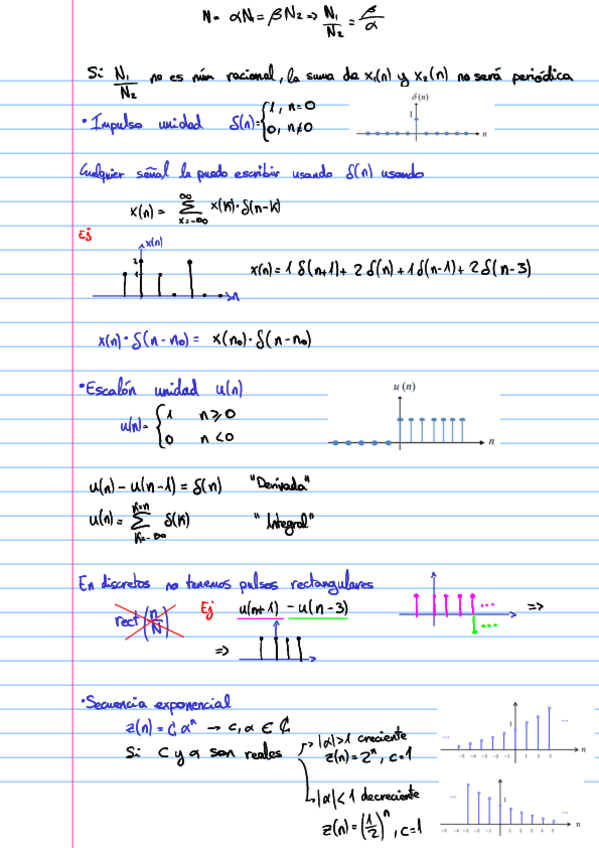 N = αN₁ = βN₂ => N₁/N₂ = β/α
Si N₁/N₂ no es núm racional, la suma de x₁(n) y x₂(n) no será periódica
• Impulso unidad δ(n)={1, n=0
0, n≠0
δ(n)
1
n
Cualquier señal la puedo escribir usando δ(n) usando
x(n) = ∞ Σ k=-∞ x(k)·δ(n-k)
Ej
x(n)
2
1
n
x(n) = 1 δ(n+1) + 2 δ(n) + 1 δ(n-1) + 2 δ(n-3)
x(n)·δ(n-n₀) = x(n₀)·δ(n-n₀)
• Escalón unidad u(n)
u(n) = {1 n⩾0
0 n<0
u (n)
n
u(n) - u(n-1) = δ(n) "Derivada"
u(n) = k=n Σ k=-∞ δ(k) "Integral"
En discretos no tenemos pulsos rectangulares
rect(n/N) Ej u(n+1) - u(n-3) ... =>
...
=>
• Secuencia exponencial
z(n) = C αⁿ → c, α ∈ ℂ
Si C y α son reales → |α|>1 creciente
z(n) = 2ⁿ, c=1
... 1 ...
-5 -4 -3 -2 -1 1 2 3 4 5 n
↳ |α|<1 decreciente
z(n) = (1/2)ⁿ, c=1
... 1 ...
-5 -4 -3 -2 -1 1 2 3 4 5 n